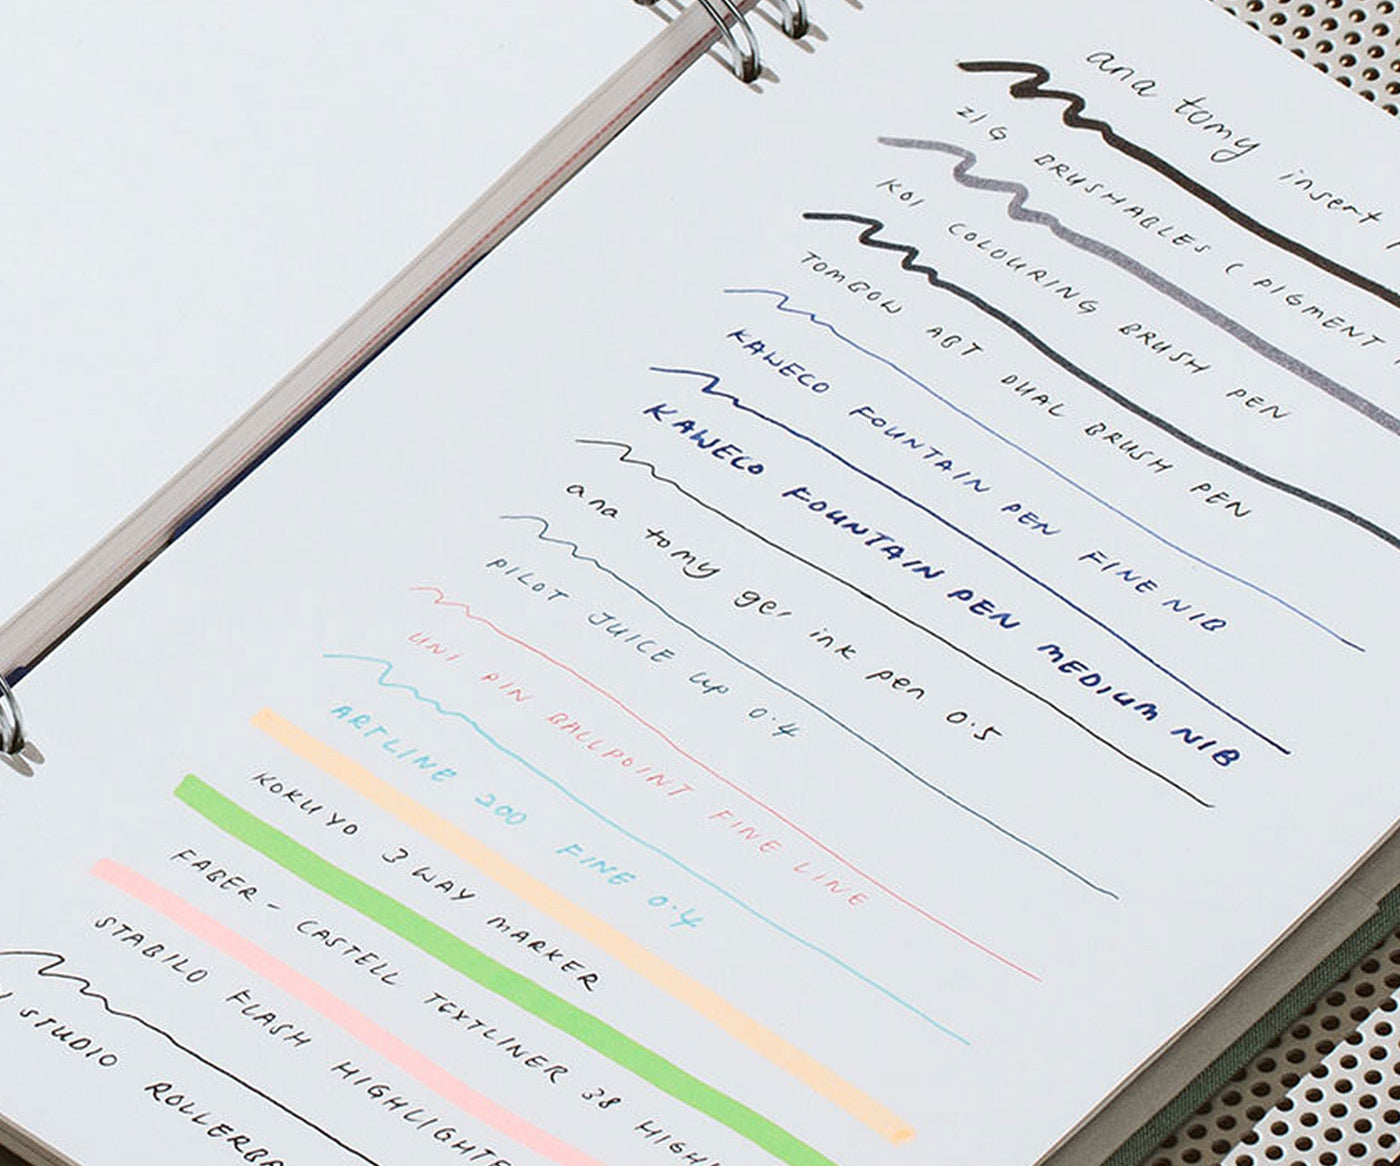 ana tomy insert
ZIG BRUSHABLES ( PIGMENT
KOI COLOURING BRUSH PEN
TOMBOW ABT DUAL BRUSH PEN
KAWECO FOUNTAIN PEN FINE NIB
KAWECO FOUNTAIN PEN MEDIUM NIB
ana tomy gel ink pen 0.5
PILOT JUICE UP 0.4
UNI PIN BALLPOINT FINE LINE
ARTLINE 200 FINE 0.4
KOKUYO 3 WAY MARKER
FABER - CASTELL TEXTLINER 38
STABILO FLASH
STUDIO